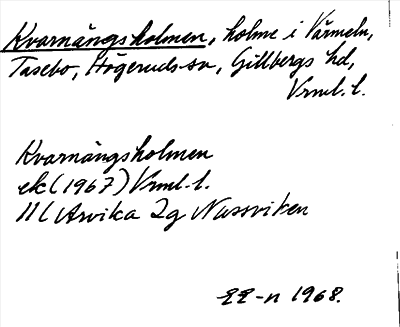 Kvarnängsholmen, holme i Värmeln,
Tasebo, Högeruds sn, Gillbergs hd,
Vrml. l.
Kvarnängsholmen
ek (1967) Vrml. l.
11C Arvika 2g Nussviken
-n 1968.